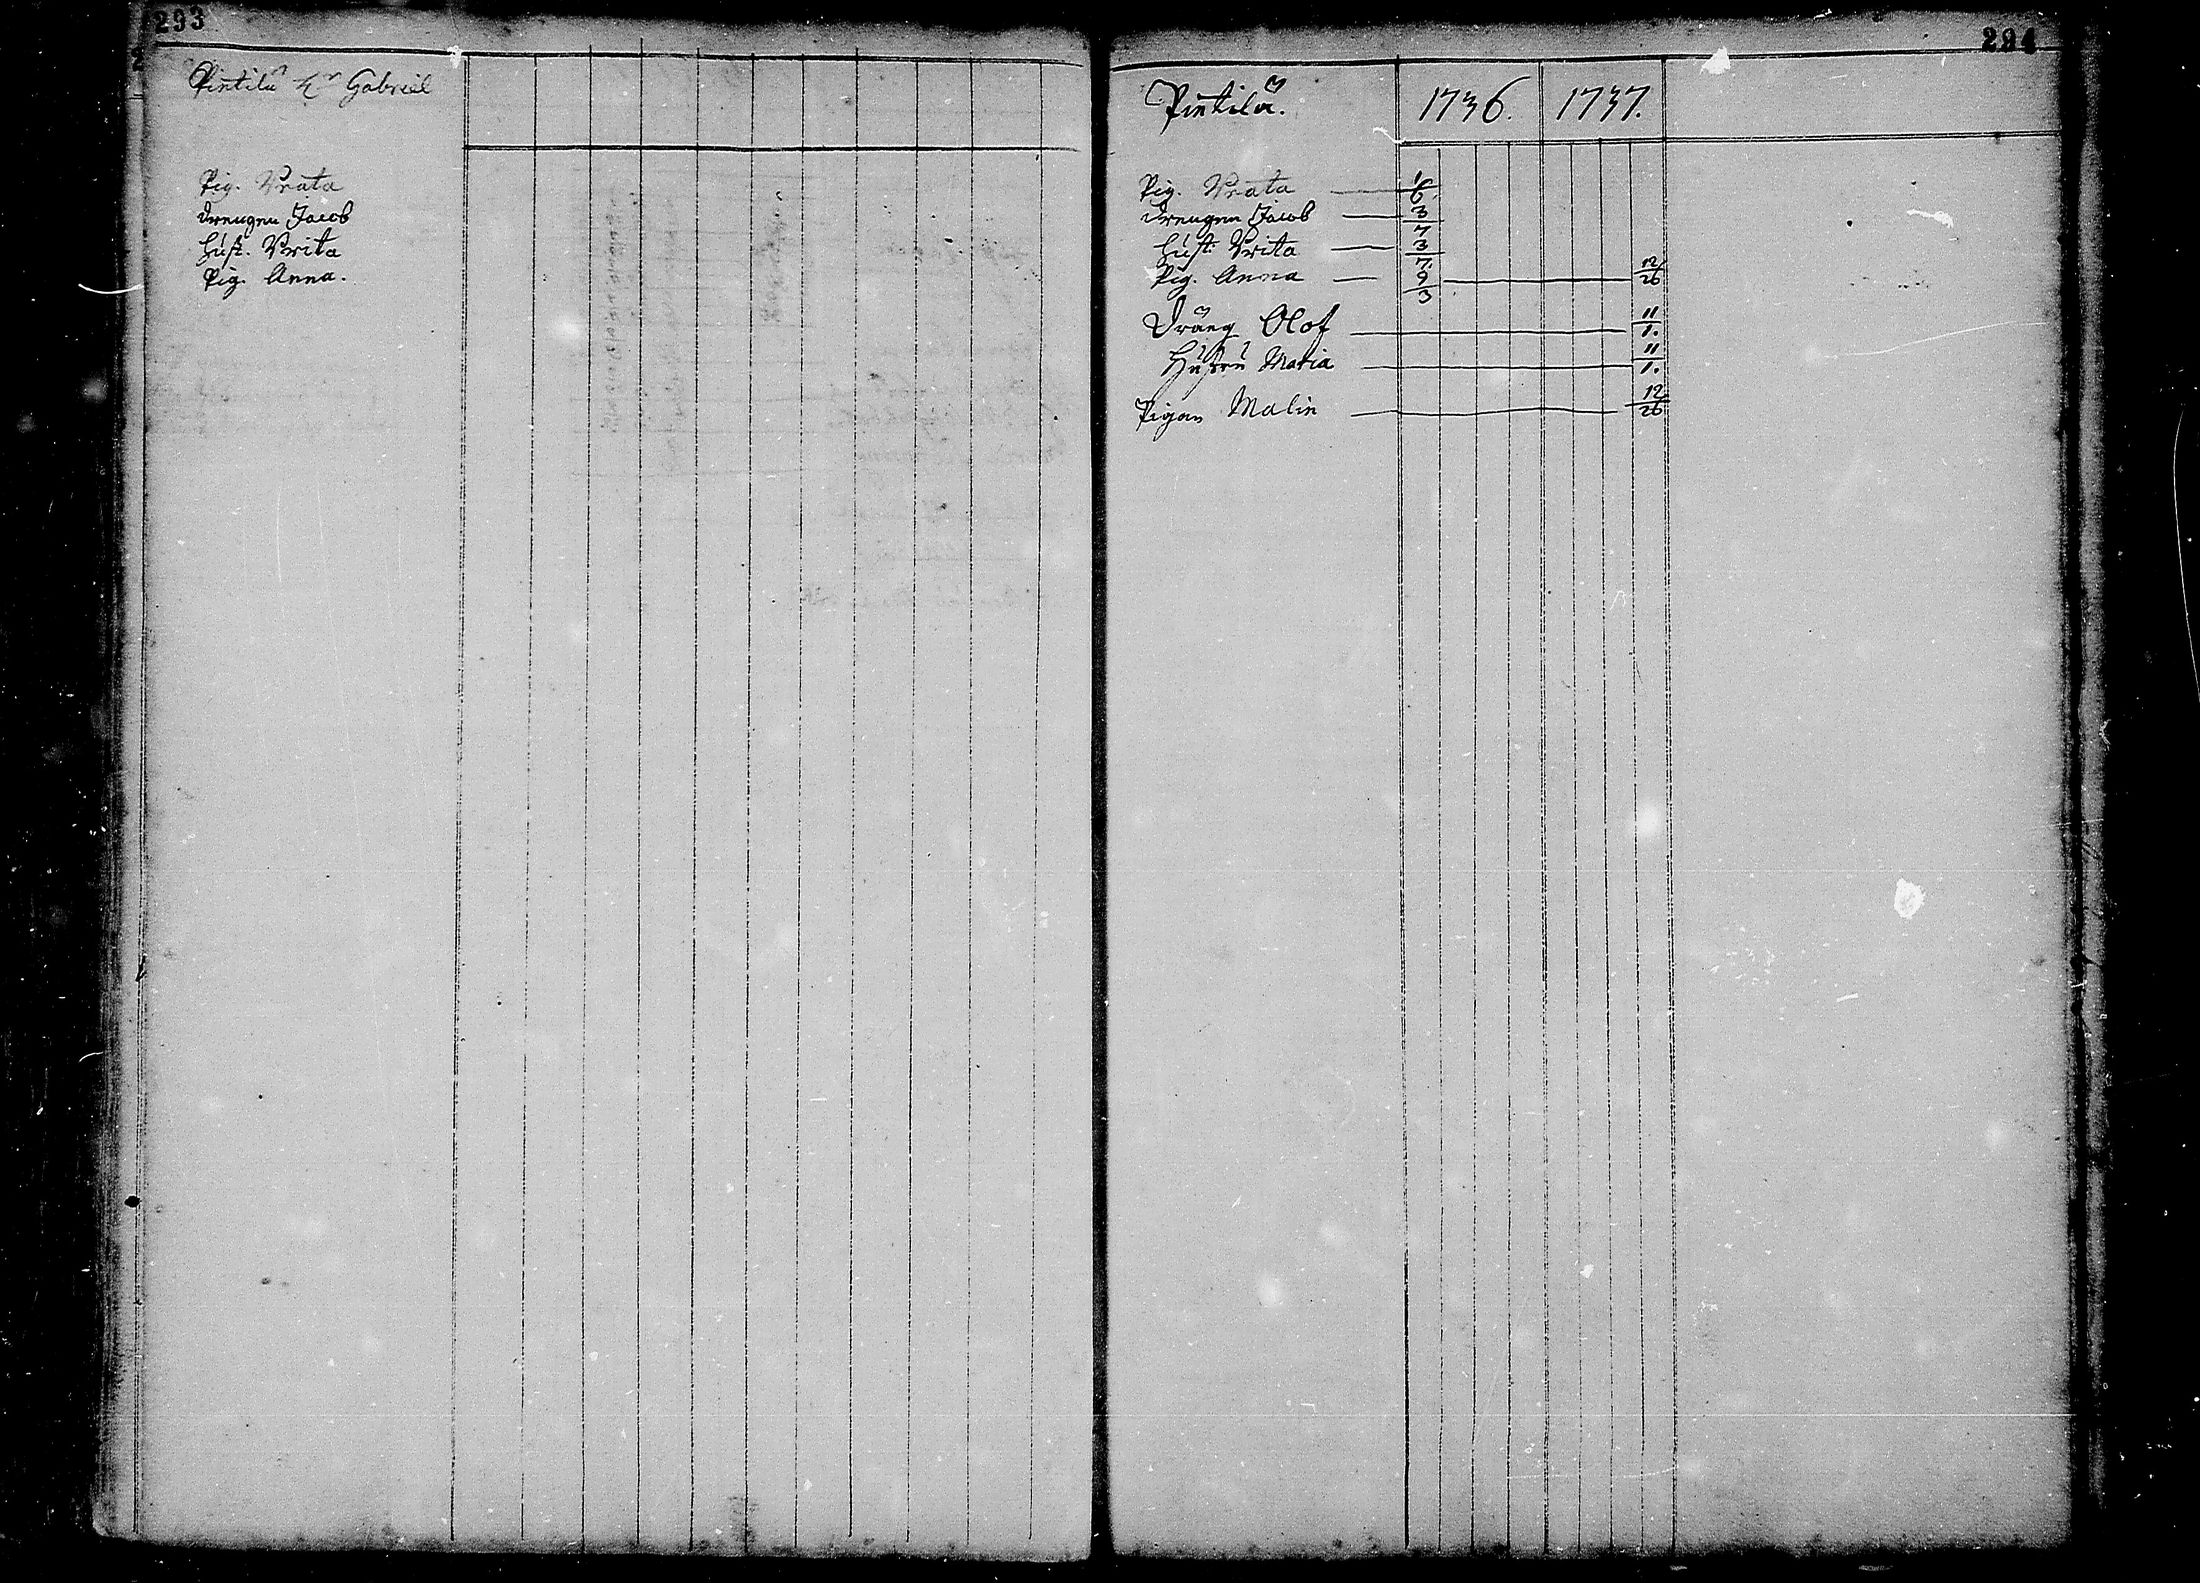 293
Pietilä Gabriel
Pig. Brata
Drengen Jacob
Hust. Brita
Pig. Anna.
294
Pietilä. 1736. 1737.
Pig. Brata 1/6
Drengen Jacob 3/7
Hust. Brita 3/7.
Pig. Anna 9/3 12/26
Dräng Olof 11/1.
Hustru Maria 11/1.
Pigan Malin 12/26